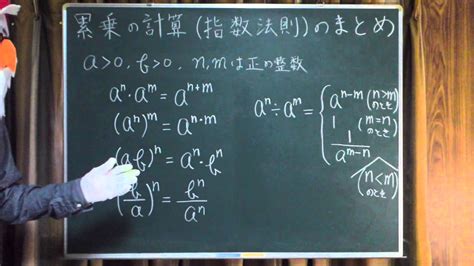 累乗の計算(指数法則)のまとめ
a>0, b>0, n,mは正の整数
aⁿ・aᵐ=aⁿ⁺ᵐ
(aⁿ)ᵐ=aⁿ・ᵐ
(ab)ⁿ=aⁿ・bⁿ
(b/a)ⁿ=bⁿ/aⁿ
aⁿ÷aᵐ={
aⁿ⁻ᵐ (n>mのとき)
1 (m=nのとき)
1/aᵐ⁻ⁿ
(n<mのとき)